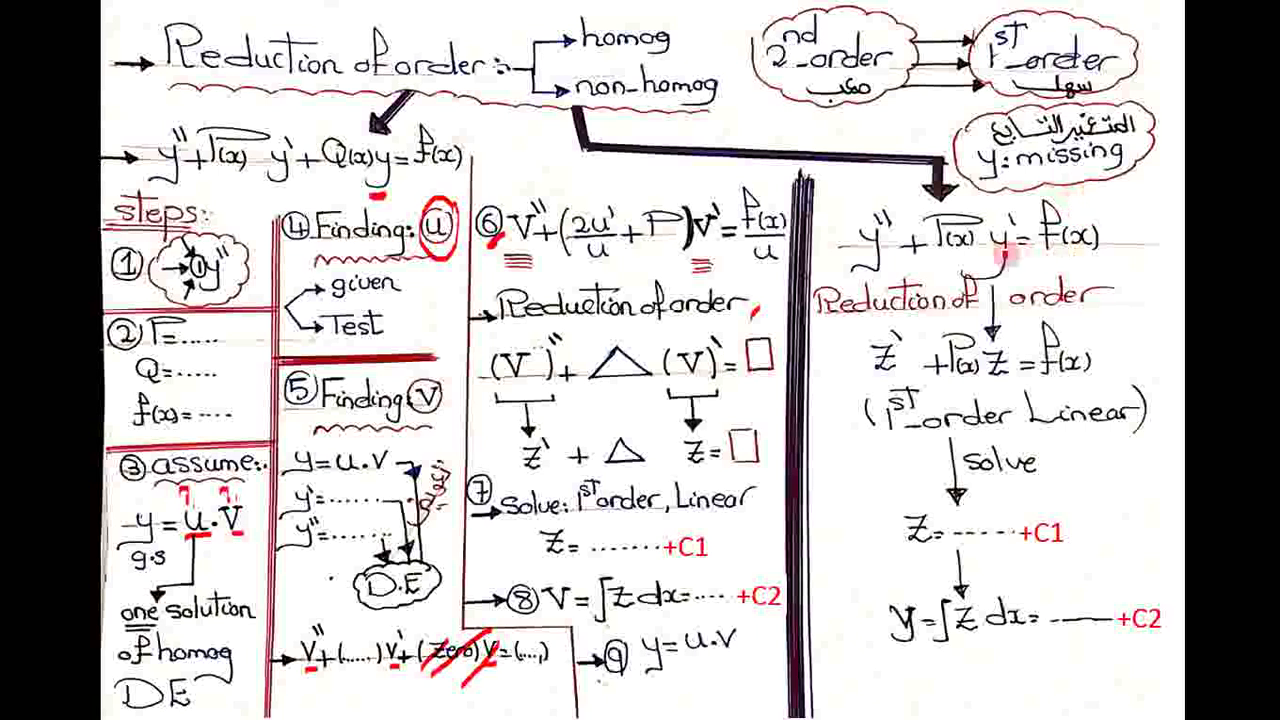 Reduction of order :-
homog
non-homog
2nd_order
صعب
1st_order
سهل
المتغير التابع
y: missing
y'' + P(x) y' + Q(x) y = f(x)
steps:
① 1 y''
② P = .....
Q = .....
f(x) = ....
③ assume:-
y = u . v
g.s
one solution
of homog
D E
④ Finding: u
given
Test
⑤ Finding: v
y = u . v
y' = ......
y'' = ......
D.E
v'' + (.....) v' + (zero) v = (....)
⑥ v'' + (2u'/u + P) v' = f(x)/u
Reduction of order,
(v)'' + △ (v)' = □
z' + △ z = □
⑦
Solve: 1st order, Linear
z = ........ +C1
⑧ v = ∫ z dx = .... +C2
⑨ y = u . v
y'' + P(x) y' = f(x)
Reduction of order
z' + P(x) z = f(x)
(1st_order Linear)
solve
z = ....... +C1
y = ∫ z dx = —— +C2